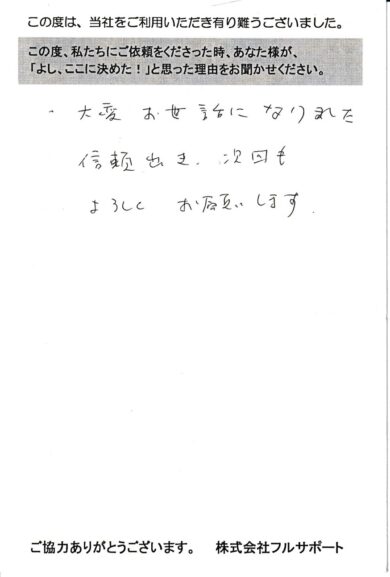 この度は、当社をご利用いただき有り難うございました。
この度、私たちにご依頼をくださった時、あなた様が、
「よし、ここに決めた！」と思った理由をお聞かせください。
・大変お世話になりました
信頼出き、次回も
よろしくお願いします。
ご協力ありがとうございます。 株式会社フルサポート